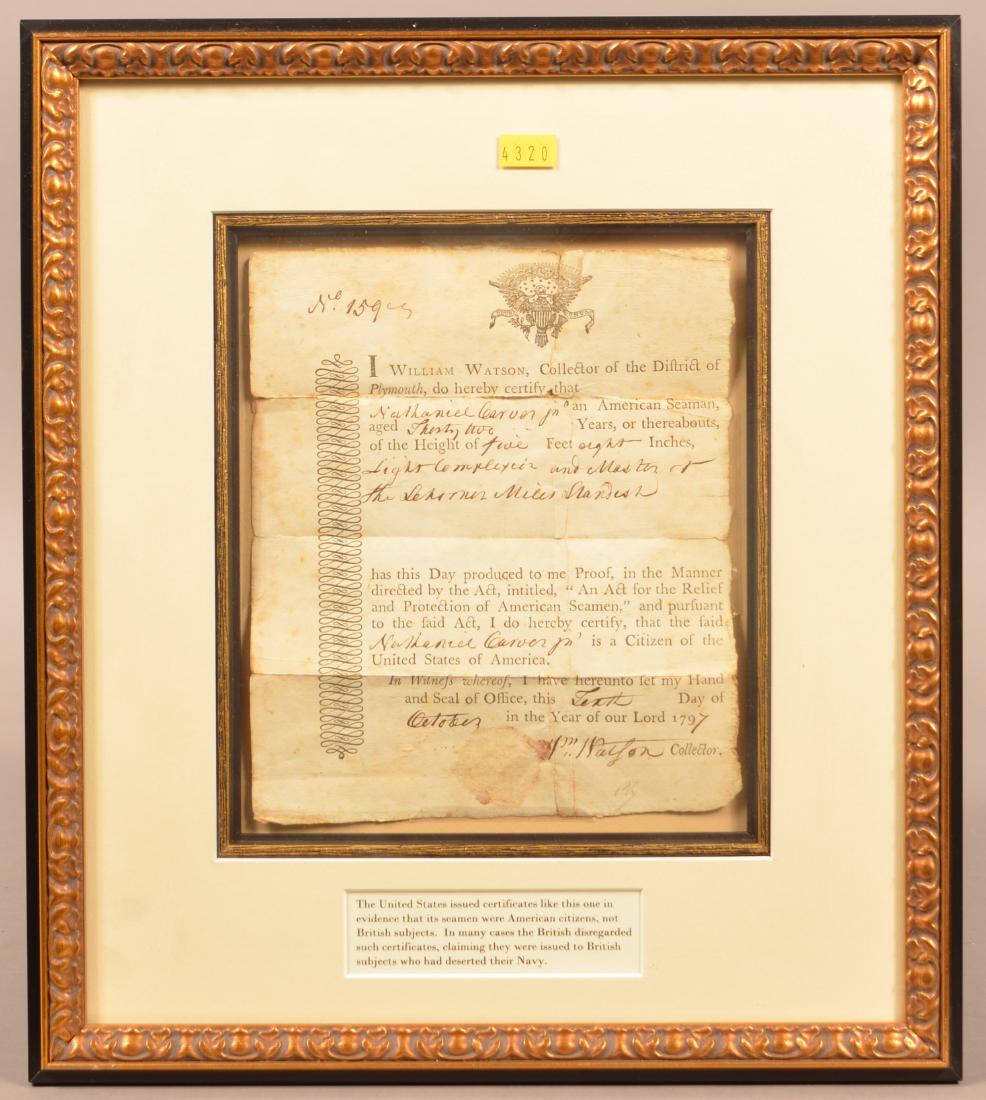 4320
No 159
I WILLIAM WATSON, Collector of the Diſtrict of
Plymouth, do hereby certify that
Nathaniel Carver jnr an American Seaman,
aged Thirty two Years, or thereabouts,
of the Height of five Feet eight Inches,
Light Complexion and Master of
the Schooner Miles Standish
has this Day produced to me Proof, in the Manner
directed by the Act, intitled, “An Act for the Relief
and Protection of American Seamen,” and purſuant
to the ſaid Act, I do hereby certify, that the ſaid
Nathaniel Carver jnr is a Citizen of the
United States of America.
In Witneſs whereof, I have hereunto ſet my Hand
and Seal of Office, this Tenth Day of
October in the Year of our Lord 1797
Wm Watson Collector.
The United States issued certificates like this one in
evidence that its seamen were American citizens, not
British subjects. In many cases the British disregarded
such certificates, claiming they were issued to British
subjects who had deserted their Navy.